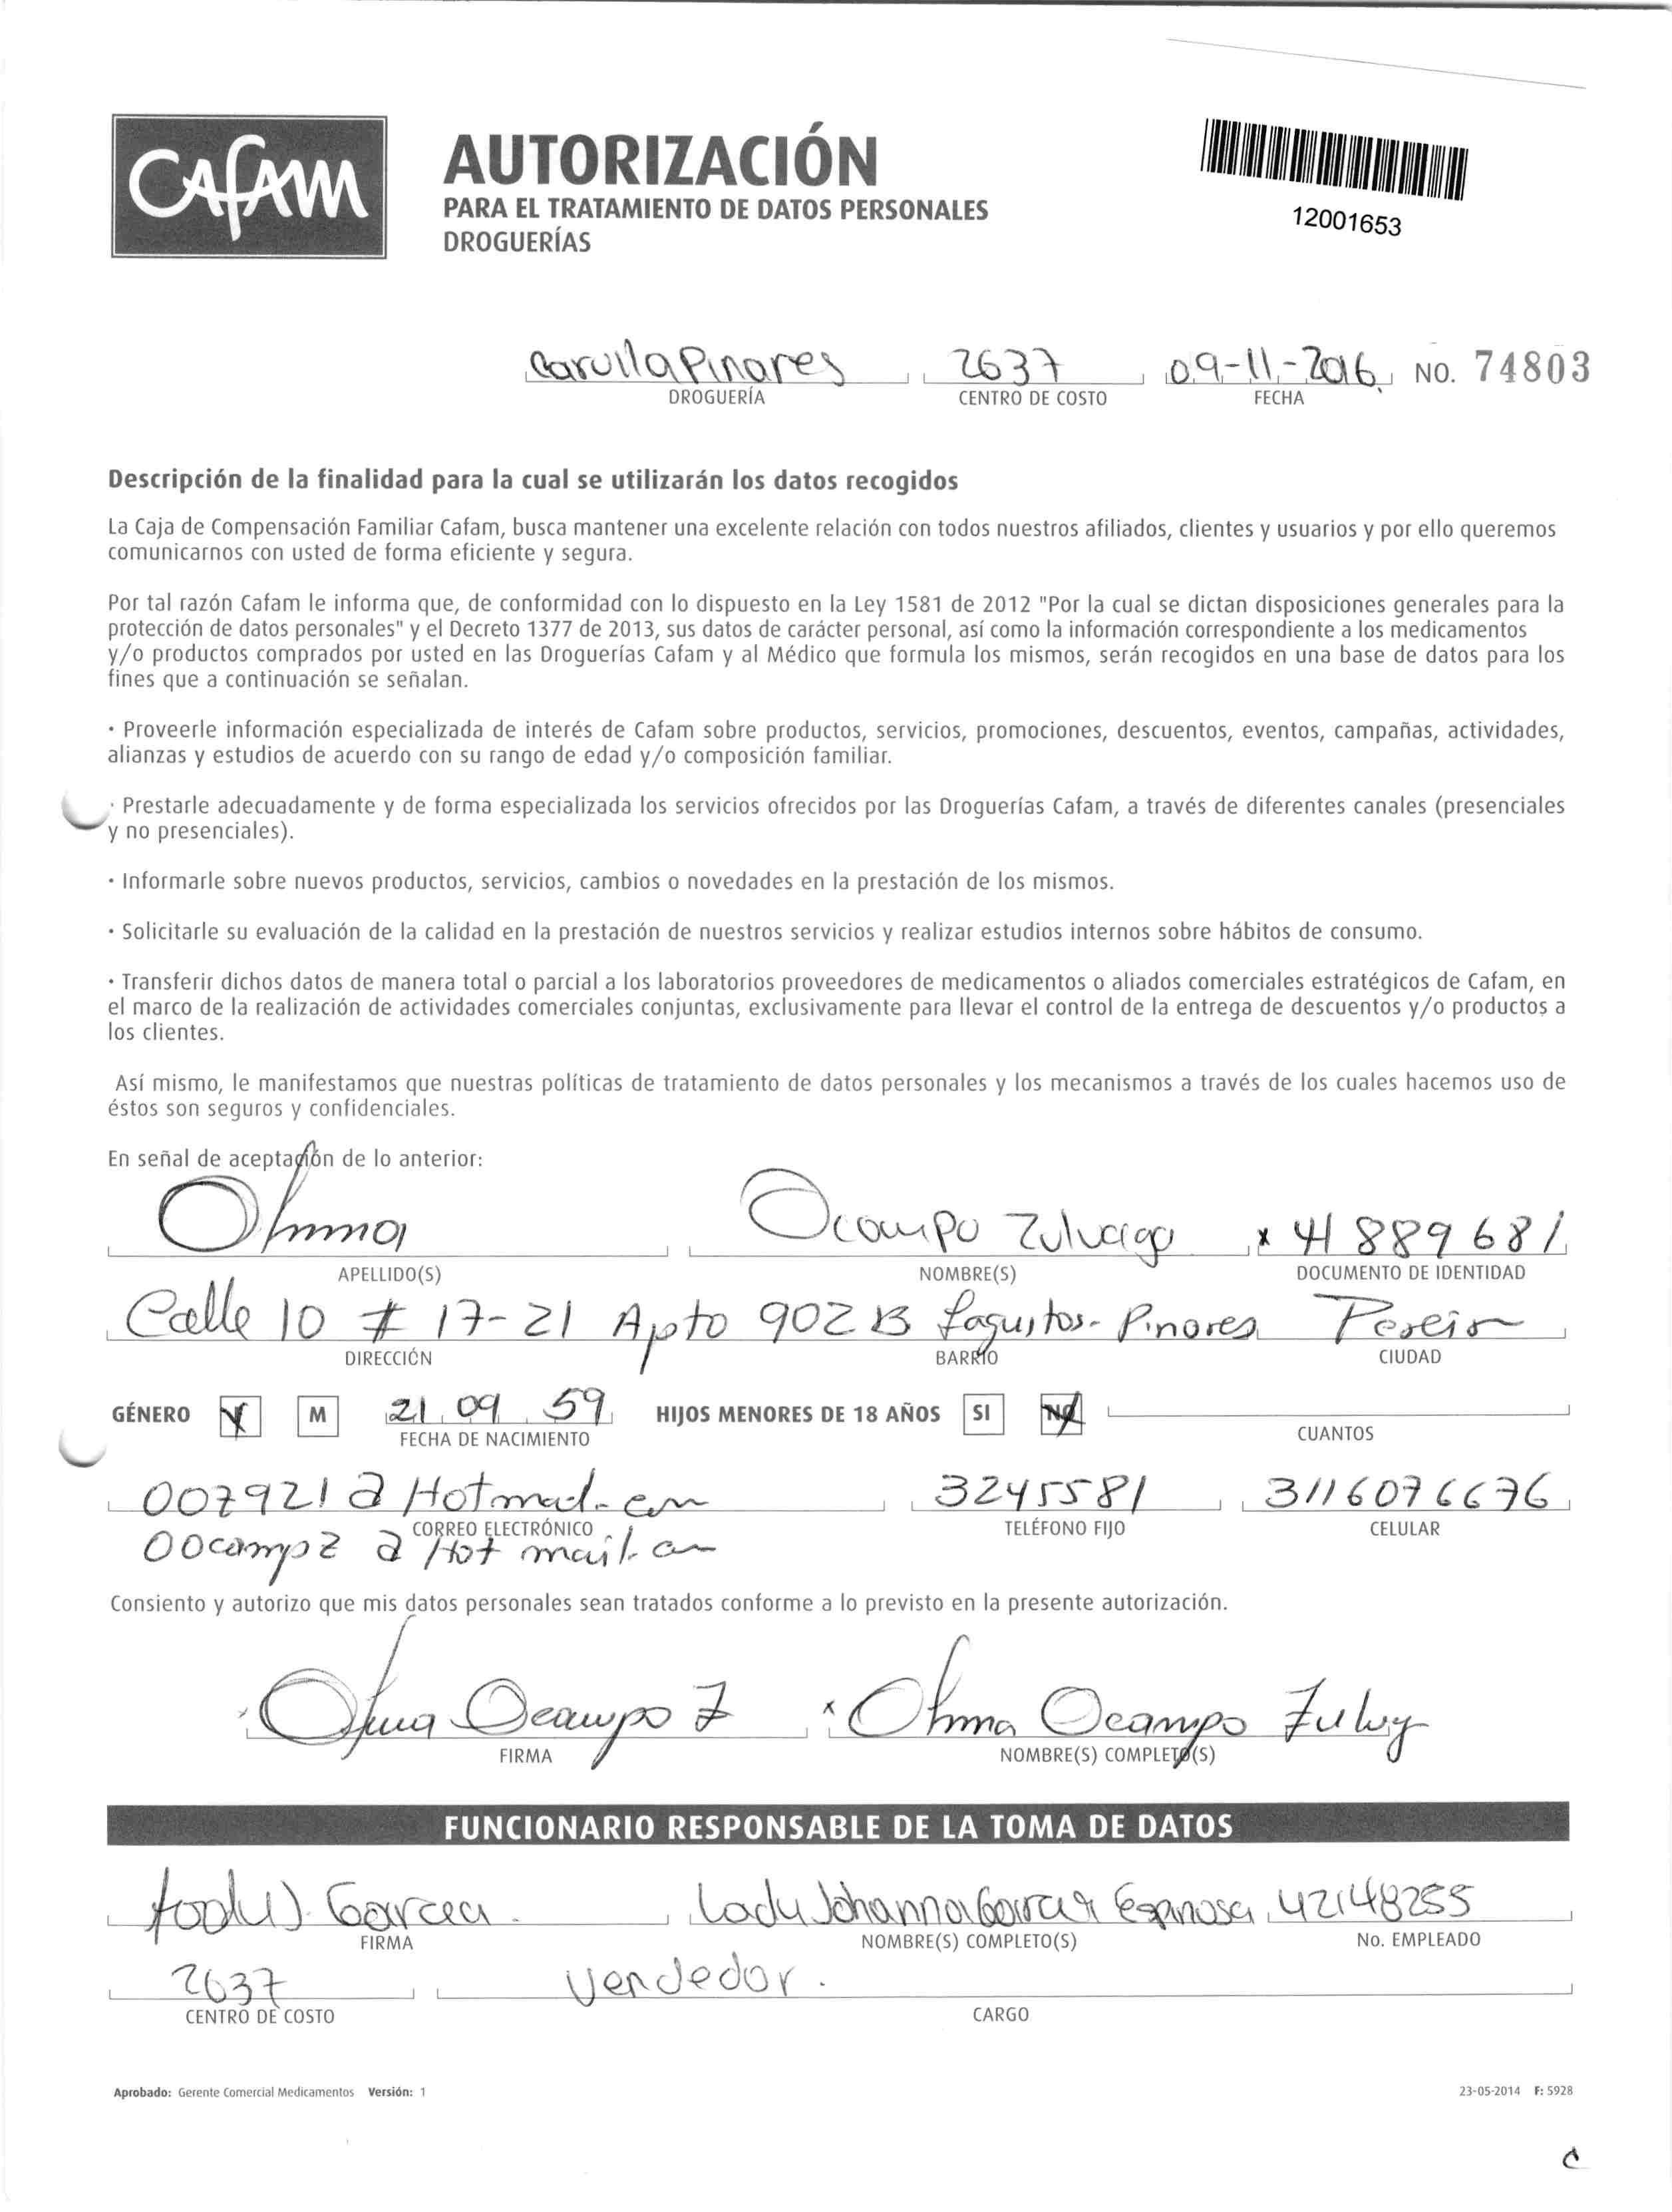 CAFAM
AUTORIZACIÓN
PARA EL TRATAMIENTO DE DATOS PERSONALES
DROGUERÍAS
12001653
Carulla Pinares 2637 09-11-2016 NO. 74803
DROGUERÍA CENTRO DE COSTO FECHA
Descripción de la finalidad para la cual se utilizarán los datos recogidos
La Caja de Compensación Familiar Cafam, busca mantener una excelente relación con todos nuestros afiliados, clientes y usuarios y por ello queremos
comunicarnos con usted de forma eficiente y segura.
Por tal razón Cafam le informa que, de conformidad con lo dispuesto en la Ley 1581 de 2012 "Por la cual se dictan disposiciones generales para la
protección de datos personales" y el Decreto 1377 de 2013, sus datos de carácter personal, así como la información correspondiente a los medicamentos
y/o productos comprados por usted en las Droguerías Cafam y al Médico que formula los mismos, serán recogidos en una base de datos para los
fines que a continuación se señalan.
· Proveerle información especializada de interés de Cafam sobre productos, servicios, promociones, descuentos, eventos, campañas, actividades,
alianzas y estudios de acuerdo con su rango de edad y/o composición familiar.
· Prestarle adecuadamente y de forma especializada los servicios ofrecidos por las Droguerías Cafam, a través de diferentes canales (presenciales
y no presenciales).
· Informarle sobre nuevos productos, servicios, cambios o novedades en la prestación de los mismos.
· Solicitarle su evaluación de la calidad en la prestación de nuestros servicios y realizar estudios internos sobre hábitos de consumo.
· Transferir dichos datos de manera total o parcial a los laboratorios proveedores de medicamentos o aliados comerciales estratégicos de Cafam, en
el marco de la realización de actividades comerciales conjuntas, exclusivamente para llevar el control de la entrega de descuentos y/o productos a
los clientes.
Así mismo, le manifestamos que nuestras políticas de tratamiento de datos personales y los mecanismos a través de los cuales hacemos uso de
éstos son seguros y confidenciales.
En señal de aceptación de lo anterior:
Ocampo Zuluaga x 41889681
APELLIDO(S) NOMBRE(S) DOCUMENTO DE IDENTIDAD
Calle 10 # 17-21 Apto 902 B Laguitos - Pinares Pereira
DIRECCIÓN BARRIO CIUDAD
GÉNERO M 21 09 59 HIJOS MENORES DE 18 AÑOS SI NO
FECHA DE NACIMIENTO CUANTOS
007921@Hotmail.com 3245581 3116076676
CORREO ELECTRÓNICO TELÉFONO FIJO CELULAR
OOcampz@Hotmail.com
Consiento y autorizo que mis datos personales sean tratados conforme a lo previsto en la presente autorización.
Ocampo Z x Ocampo
FIRMA NOMBRE(S) COMPLETO(S)
FUNCIONARIO RESPONSABLE DE LA TOMA DE DATOS
Garcia Lady Johanna Garcia Espinosa 42148255
FIRMA NOMBRE(S) COMPLETO(S) No. EMPLEADO
2637 Vendedor.
CENTRO DE COSTO CARGO
Aprobado: Gerente Comercial Medicamentos Versión: 1 23-05-2014 F: 5928